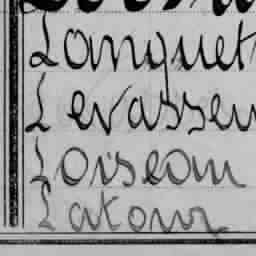 Lanquet
Levasseu
Loiseau
Latour